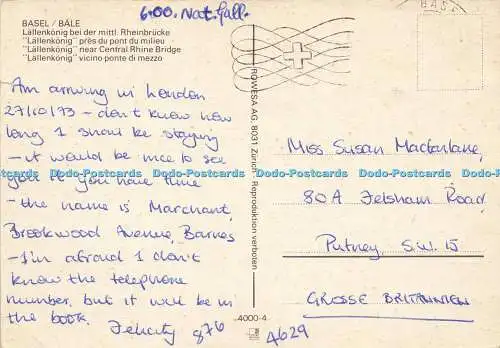 6.00. Nat. Gall.
BASEL / BÂLE
Lällenkönig bei der mittl. Rheinbrücke
"Lällenkönig" près du pont du milieu
"Lällenkönig" near Central Rhine Bridge
"Lällenkönig" vicino ponte di mezzo
BASEL
Am arriving in London
27/10/73 - don't know how
long I shall be staying
- it would be nice to see
you if you have time
- the name is Marchant,
Brookwood Avenue, Barnes
- I'm afraid I don't
know the telephone
number, but it will be in
the book. Felicity
876
ROWESA AG, 8031 Zürich. Reproduktion verboten
4000-4
Miss Susan Macfarlane,
80A Felsham Road,
Putney S.W. 15
GROSSE BRITANNIEN
4629
Dodo-Postcards Dodo-Postcards Dodo-Postcards Dodo-Postcards